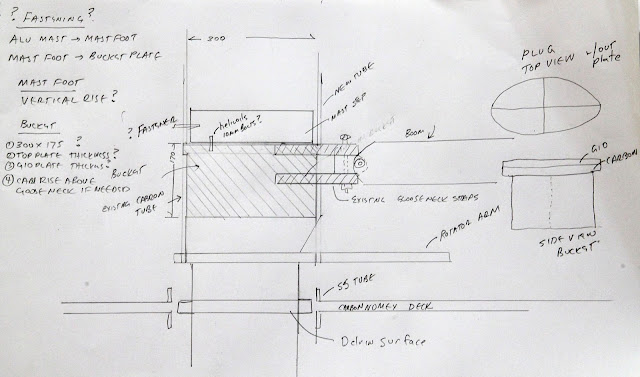 ? FASTENING ?
ALU MAST → MAST FOOT
MAST FOOT → BUCKET PLATE
MAST FOOT
VERTICAL RISE ?
BUCKET
① 300 X 175 ?
② TOP PLATE THICKNESS ?
③ G10 PLATE THICKNESS ?
④ CAN RISE ABOVE
GOOSE NECK IF NEEDED
300
? FASTENER
helicoils
10mm BOLTS?
NEW TUBE
MAST STEP
BOOM
170
BUCKET
EXISTING CARBON
TUBE
EXISTING GOOSENECK STRAPS
ROTATOR ARM
SS TUBE
CARBON NOMEX DECK
Delrin Surface
PLUG
TOP VIEW w/out
plate
G10
CARBON
SIDE VIEW
BUCKET